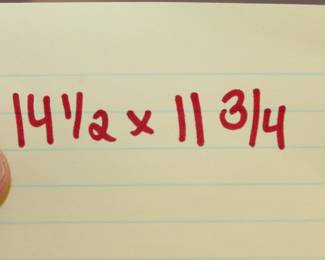 14 1/2 x 11 3/4